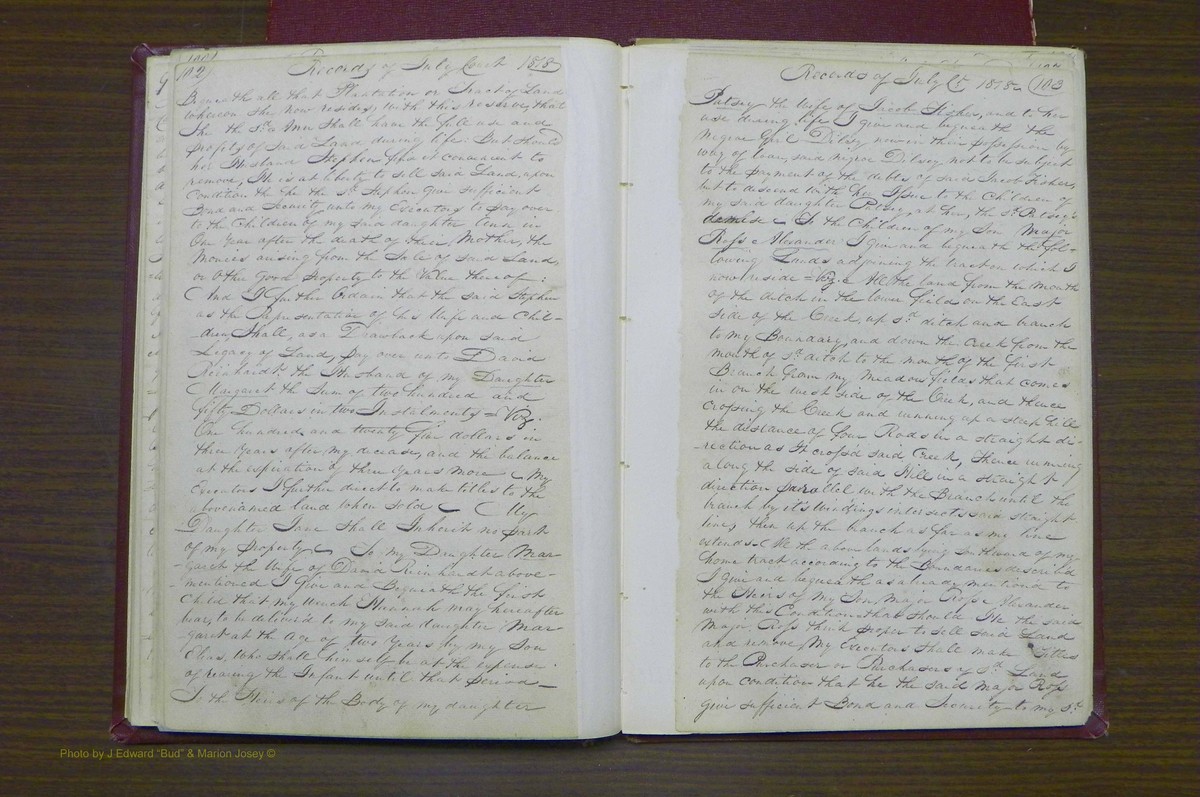 102
Records of July Court 1818
Bequeath all that Plantation or Tract of Land
whereon she now resides, with this reserve, that
She the sd. Ann shall have the full use and
profits of said Land during life: But should
her Husband Stephen find it convenient to
remove, He is at liberty to sell said Land, upon
Condition that he the sd. Stephen give sufficient
Bond and Security unto my Executors to pay over
to the Children of my said daughter Ann in
One Year after the death of their Mother, the
Monies arising from the Sale of said Land,
or other good Property to the Value thereof:
And I further Ordain that the said Stephen
as the Representation of his Wife and Chil-
dren, Shall, as a Drawback upon said
Legacy of Land, pay over unto David
Reinheardt the Husband of my Daughter
Margaret the Sum of two hundred and
fifty Dollars in two Instalments = Viz.
One hundred and twenty five dollars in
three Years after my decease, and the balance
at the expiration of three Years more My
Executors I further direct to make titles to the
abovenamed land when Sold My
Daughter Jane Shall Inherit no part
of my property To my Daughter Mar-
garet the Wife of David Reinhardt above-
mentioned I Give and Bequeath the first
Child that my Wench Hannah may hereafter
bear, to be delivered to my said daughter Mar-
garet at the Age of two Years by my Son
Elias, who shall himself be at the expense
of rearing the Infant until that period
To the Heirs of the Body of my daughter
Records of July Ct. 1818 103
Patsey the wife of Jacob Fisher, and to her
use during life I give and bequeath the
Negroe Girl Dilsey now in their possession by
way of loan, said negroe Dilsey, not to be subject
to the payment of the debts of said Jacob Fisher,
but to descend with her Issue to the Children of
my said daughter Patsey, at her, the sd. Patsey's
demise To the Children of my Son Major
Ross Alexander I give and bequeath the fol-
lowing Lands adjoining the tract on which I
now reside = Viz = All the land from the mouth
of the ditch in the lower field on the East
side of the Creek, up sd. ditch and branch
to my Boundary, and down the Creek from the
mouth of sd. ditch to the mouth of the first
Branch from my meadow fields that comes
in on the west side of the Creek, and thence
crossing the Creek and running up a steep hill
the distance of four Rods in a straight di-
rection as It cross'd said Creek, thence running
along the side of said Hill in a straight
direction parallel with the Branch until the
branch by it's windings intersects said straight
line, then up the branch as far as my line
extends. All the above lands lying Southward of my
home tract according to the Boundaries described
I give and bequeath as already mentioned to
the Heirs of my Son Major Ross Alexander
with this Condition that should He the said
Major Ross think proper to sell said Land
and remove, My Executors shall make Titles
to the Purchaser or Purchasers of sd. Land
upon condition that he the said Major Ross
give sufficient Bond and Security to my sd.
Photo by J Edward "Bud" & Marion Josey ©